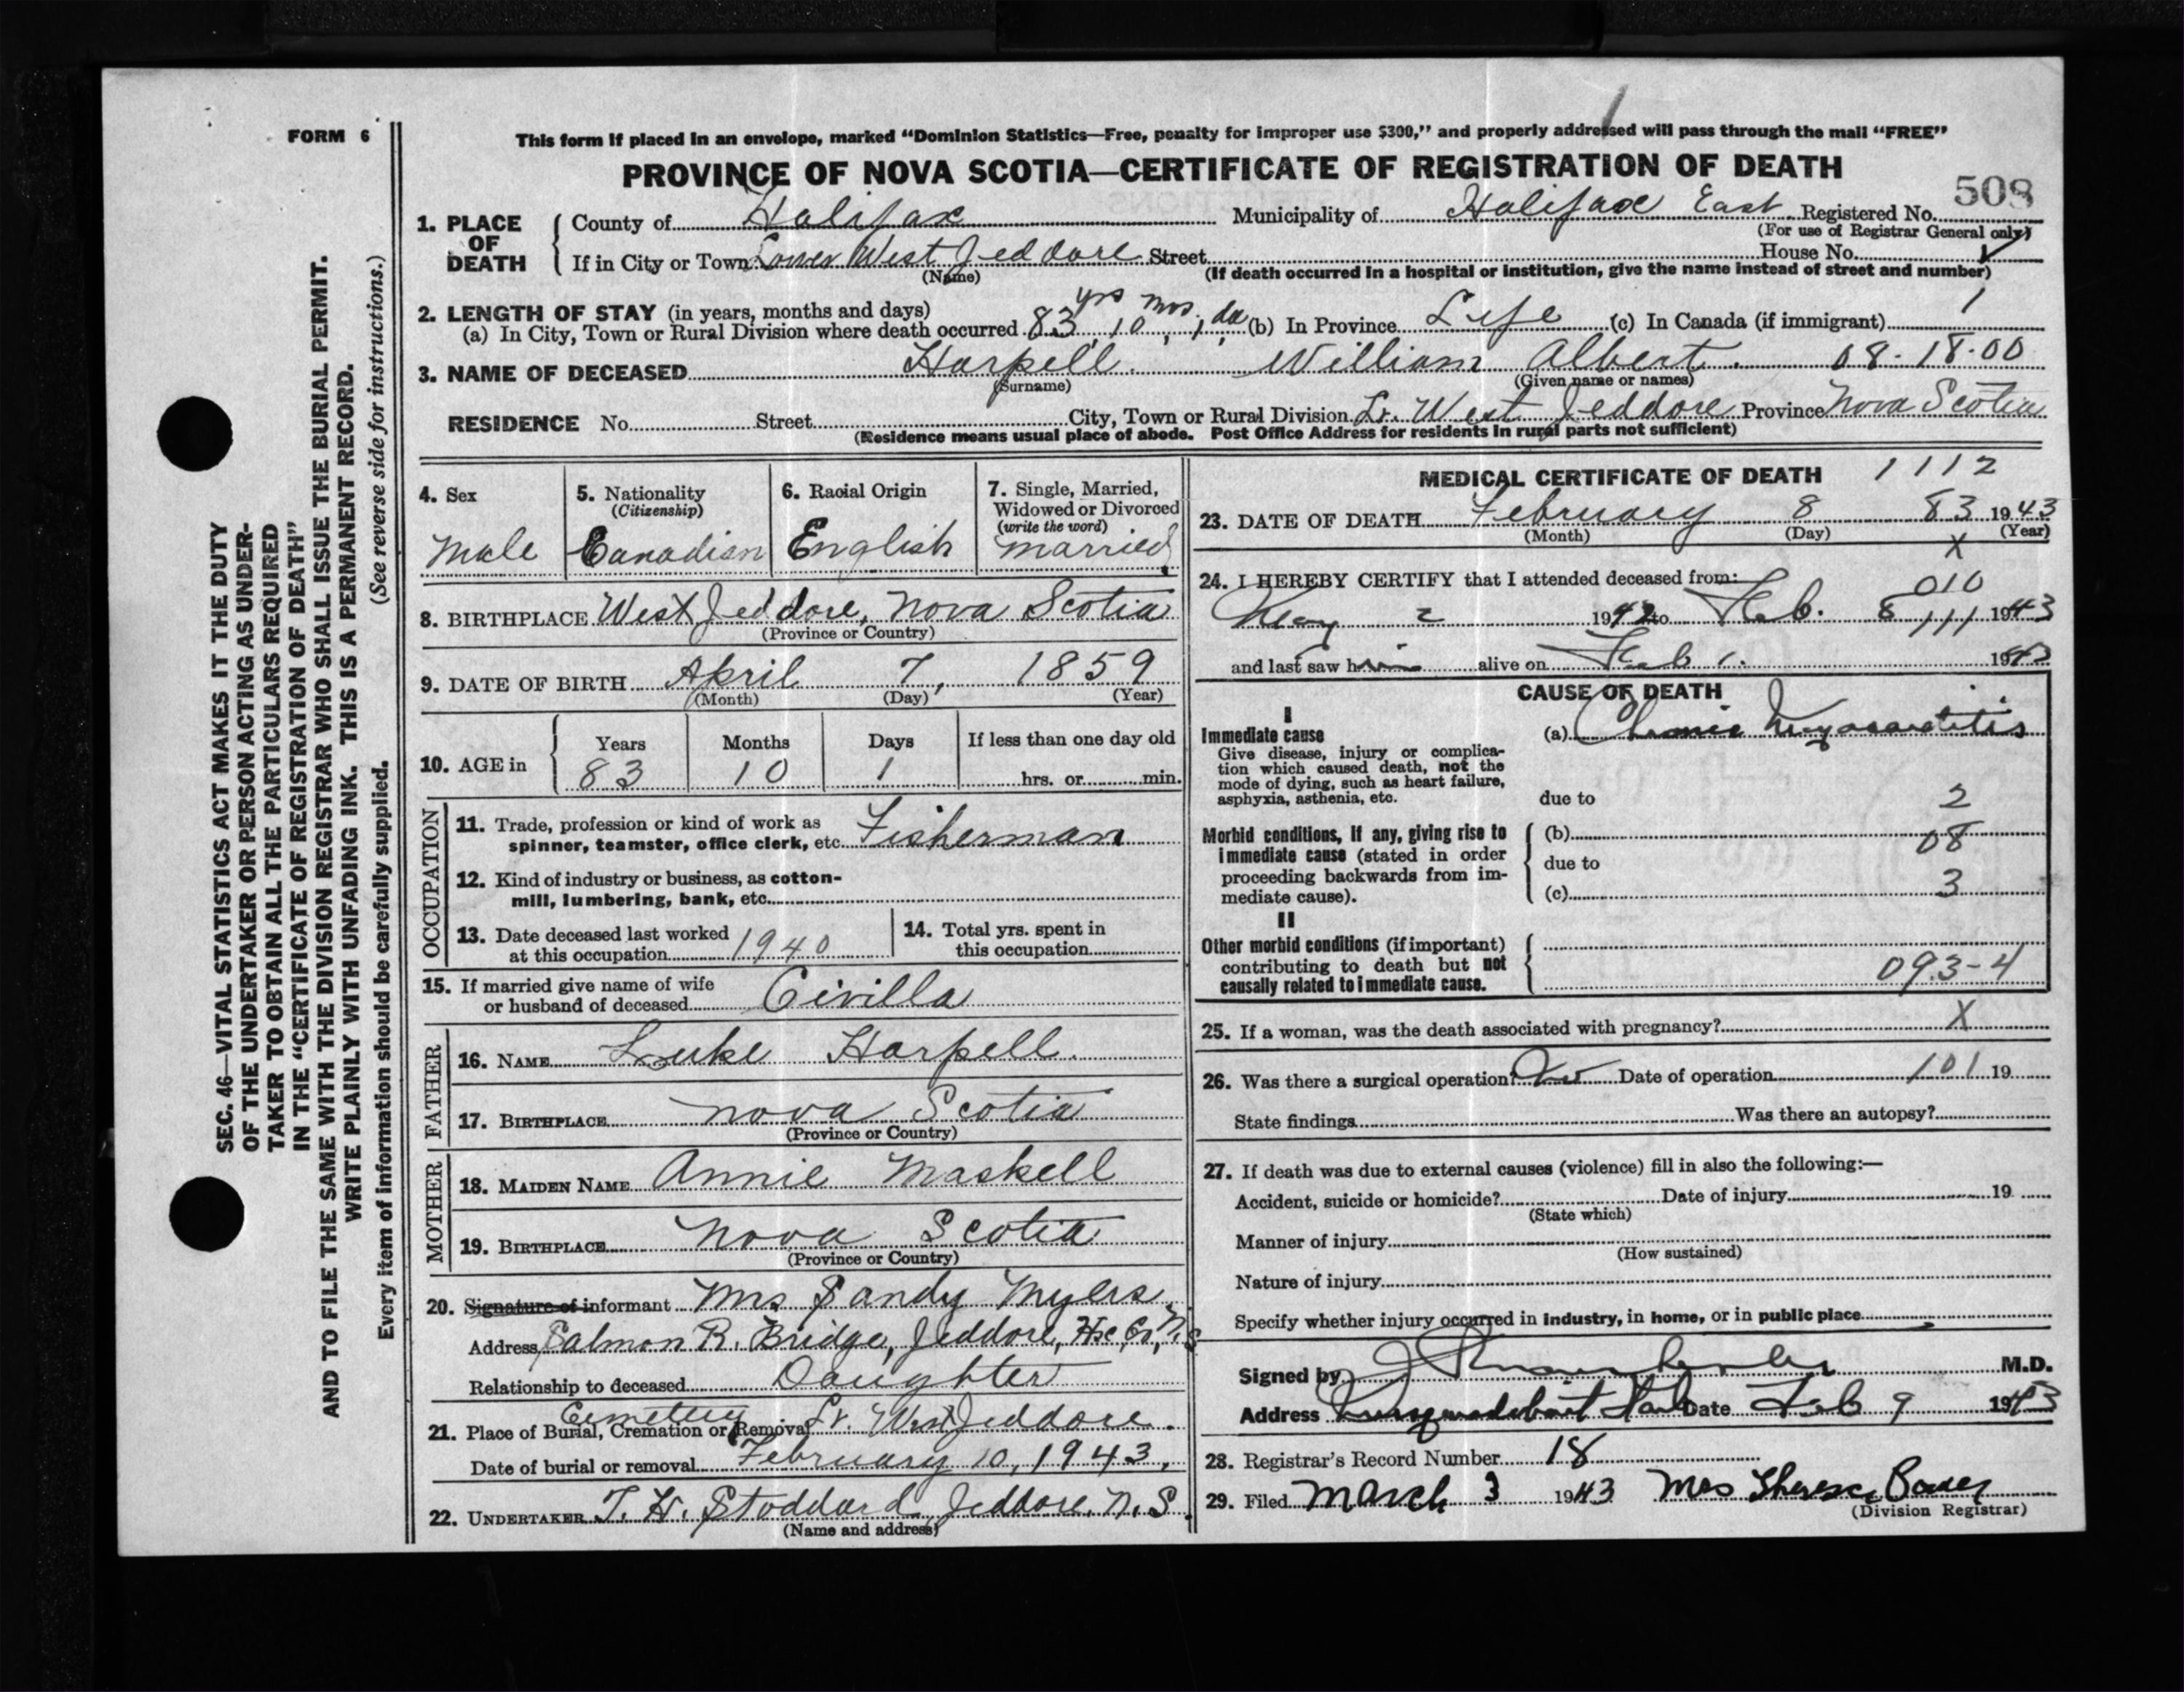 FORM 6
This form if placed in an envelope, marked "Dominion Statistics—Free, penalty for improper use $300," and properly addressed will pass through the mail "FREE"
PROVINCE OF NOVA SCOTIA—CERTIFICATE OF REGISTRATION OF DEATH
508
1. PLACE OF DEATH
County of Halifax Municipality of Halifax East Registered No.
(For use of Registrar General only)
If in City or Town Lower West Jeddore Street House No.
(Name) (If death occurred in a hospital or institution, give the name instead of street and number)
2. LENGTH OF STAY (in years, months and days)
(a) In City, Town or Rural Division where death occurred 83 yrs 10 mos 1 da (b) In Province Life (c) In Canada (if immigrant) 1
3. NAME OF DECEASED Harpell William Albert. 08-18-00
(Surname) (Given name or names)
RESIDENCE No. Street City, Town or Rural Division Lr. West Jeddore Province Nova Scotia
(Residence means usual place of abode. Post Office Address for residents in rural parts not sufficient)
4. Sex
Male
5. Nationality
(Citizenship)
Canadian
6. Racial Origin
English
7. Single, Married, Widowed or Divorced
(write the word)
married
8. BIRTHPLACE West Jeddore, Nova Scotia
(Province or Country)
9. DATE OF BIRTH April 7, 1859
(Month) (Day) (Year)
10. AGE in
Years Months Days If less than one day old
83 10 1 hrs. or min.
OCCUPATION
11. Trade, profession or kind of work as
spinner, teamster, office clerk, etc. Fisherman
12. Kind of industry or business, as cotton-
mill, lumbering, bank, etc.
13. Date deceased last worked
at this occupation 1940
14. Total yrs. spent in
this occupation
15. If married give name of wife
or husband of deceased Civilla
FATHER
16. NAME Luke Harpell.
17. BIRTHPLACE Nova Scotia
(Province or Country)
MOTHER
18. MAIDEN NAME Annie Maskell
19. BIRTHPLACE Nova Scotia
(Province or Country)
20. Signature of informant Mrs Sandy Myers
Address Salmon R. Bridge, Jeddore, Hx Co, N.S
Relationship to deceased Daughter
Cemetery
21. Place of Burial, Cremation or Removal Lr. West Jeddore.
Date of burial or removal February 10, 1943.
22. UNDERTAKER T. H. Stoddard, Jeddore, N.S.
(Name and address)
MEDICAL CERTIFICATE OF DEATH 1112
23. DATE OF DEATH February 8 83 1943
(Month) (Day) (Year)
X
24. I HEREBY CERTIFY that I attended deceased from:
010
May 2 1942 to Feb. 8 111 1943
and last saw him alive on Feb 1. 1943
CAUSE OF DEATH
I
Immediate cause
Give disease, injury or complica-
tion which caused death, not the
mode of dying, such as heart failure,
asphyxia, asthenia, etc.
(a) Chronic Myocarditis
due to 2
Morbid conditions, if any, giving rise to
immediate cause (stated in order
proceeding backwards from im-
mediate cause).
(b) 08
due to
(c) 3
II
Other morbid conditions (if important)
contributing to death but not
causally related to immediate cause.
093-4
25. If a woman, was the death associated with pregnancy? X
26. Was there a surgical operation? No Date of operation 101 19
State findings Was there an autopsy?
27. If death was due to external causes (violence) fill in also the following:—
Accident, suicide or homicide? Date of injury 19
(State which)
Manner of injury
(How sustained)
Nature of injury
Specify whether injury occurred in industry, in home, or in public place
Signed by M.D.
Address Musquodoboit Harb Date Feb 9 1943
28. Registrar's Record Number 18
29. Filed March 3 1943 Mrs
(Division Registrar)
SEC. 46—VITAL STATISTICS ACT MAKES IT THE DUTY
OF THE UNDERTAKER OR PERSON ACTING AS UNDER-
TAKER TO OBTAIN ALL THE PARTICULARS REQUIRED
IN THE "CERTIFICATE OF REGISTRATION OF DEATH"
AND TO FILE THE SAME WITH THE DIVISION REGISTRAR WHO SHALL ISSUE THE BURIAL PERMIT.
WRITE PLAINLY WITH UNFADING INK. THIS IS A PERMANENT RECORD.
Every item of information should be carefully supplied. (See reverse side for instructions.)